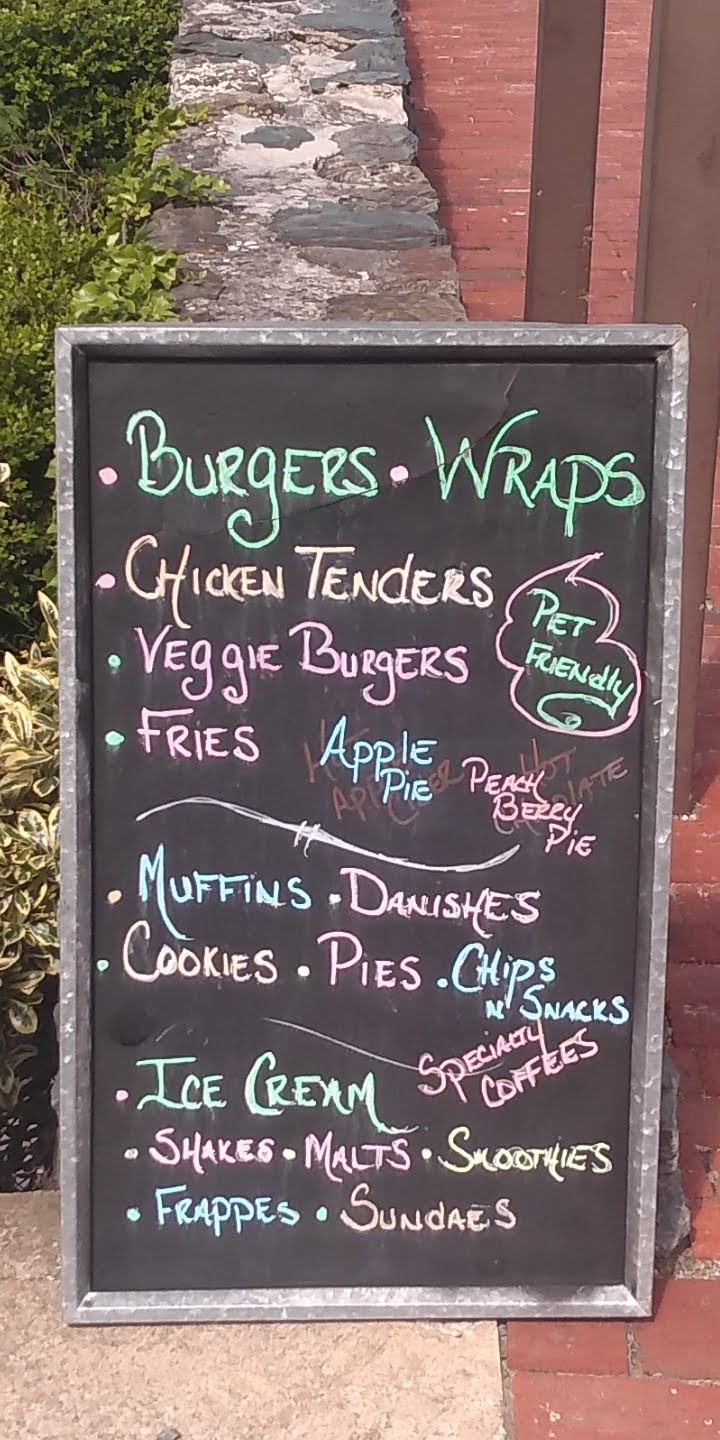 • BURGERS • WRAPS
• CHICKEN TENDERS
• VEGGIE BURGERS
PET
FRIENDLY
• FRIES
APPLE
PIE
PEACH
BERRY
PIE
HOT
CIDER
HOT
• MUFFINS • DANISHES
• COOKIES • PIES • CHIPS
N' SNACKS
SPECIALTY
COFFEES
• ICE CREAM
• SHAKES • MALTS • SMOOTHIES
• FRAPPES • SUNDAES